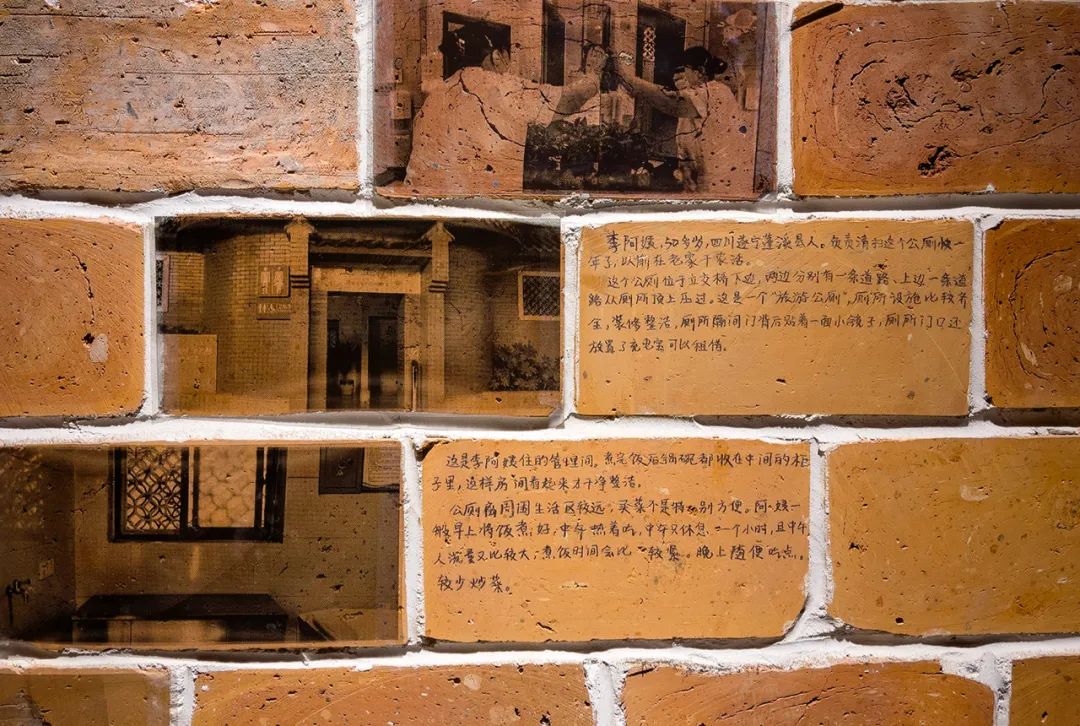 李阿姨,50多岁,四川遂宁蓬溪县人。负责清扫这个公厕快一
年了,以前在老家干农活。
这个公厕位于立交桥下边,两边分别有一条道路、上边一条道
路从厕所顶上压过。这是一个“旅游公厕”,厕所设施比较齐
全,装修整洁,厕所隔间门背后贴着一面小镜子,厕所门口还
放置了充电宝可以租借。
这是李阿姨住的管理间。煮完饭后锅碗都收在中间的柜
子里,这样房间看起来才干净整洁。
公厕离周围生活区较远,买菜不是特别方便。阿姨一
般早上将饭煮好,中午热着吃,中午只休息一个小时,且中午
人流量又比较大,煮饭时间会比较紧。晚上随便吃点,
较少炒菜。